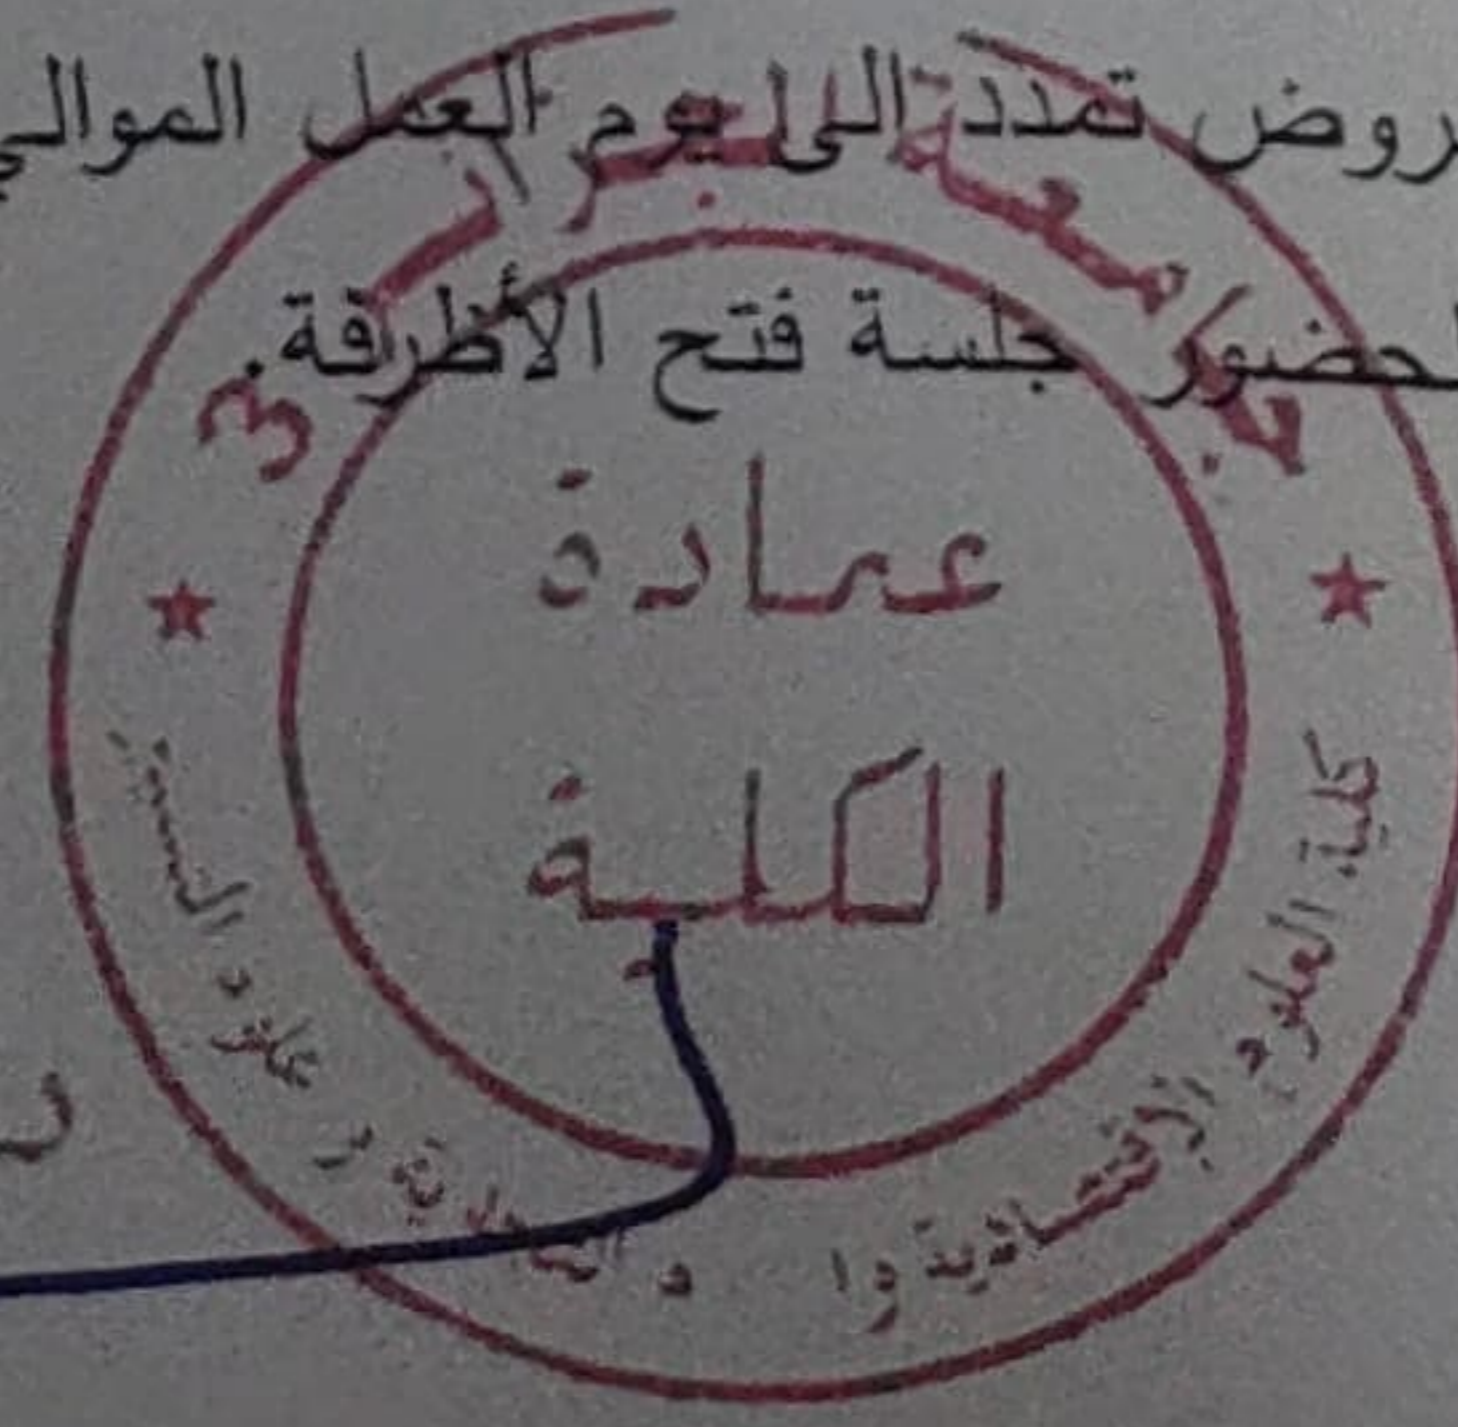 روض تمدد الى يوم العمل الموالي
لحضور جلسة فتح الأظرفة.
جامعة الجزائر 3
عمادة
الكلية
كلية العلوم الاقتصادية وا
و التجارية و علوم التسيير